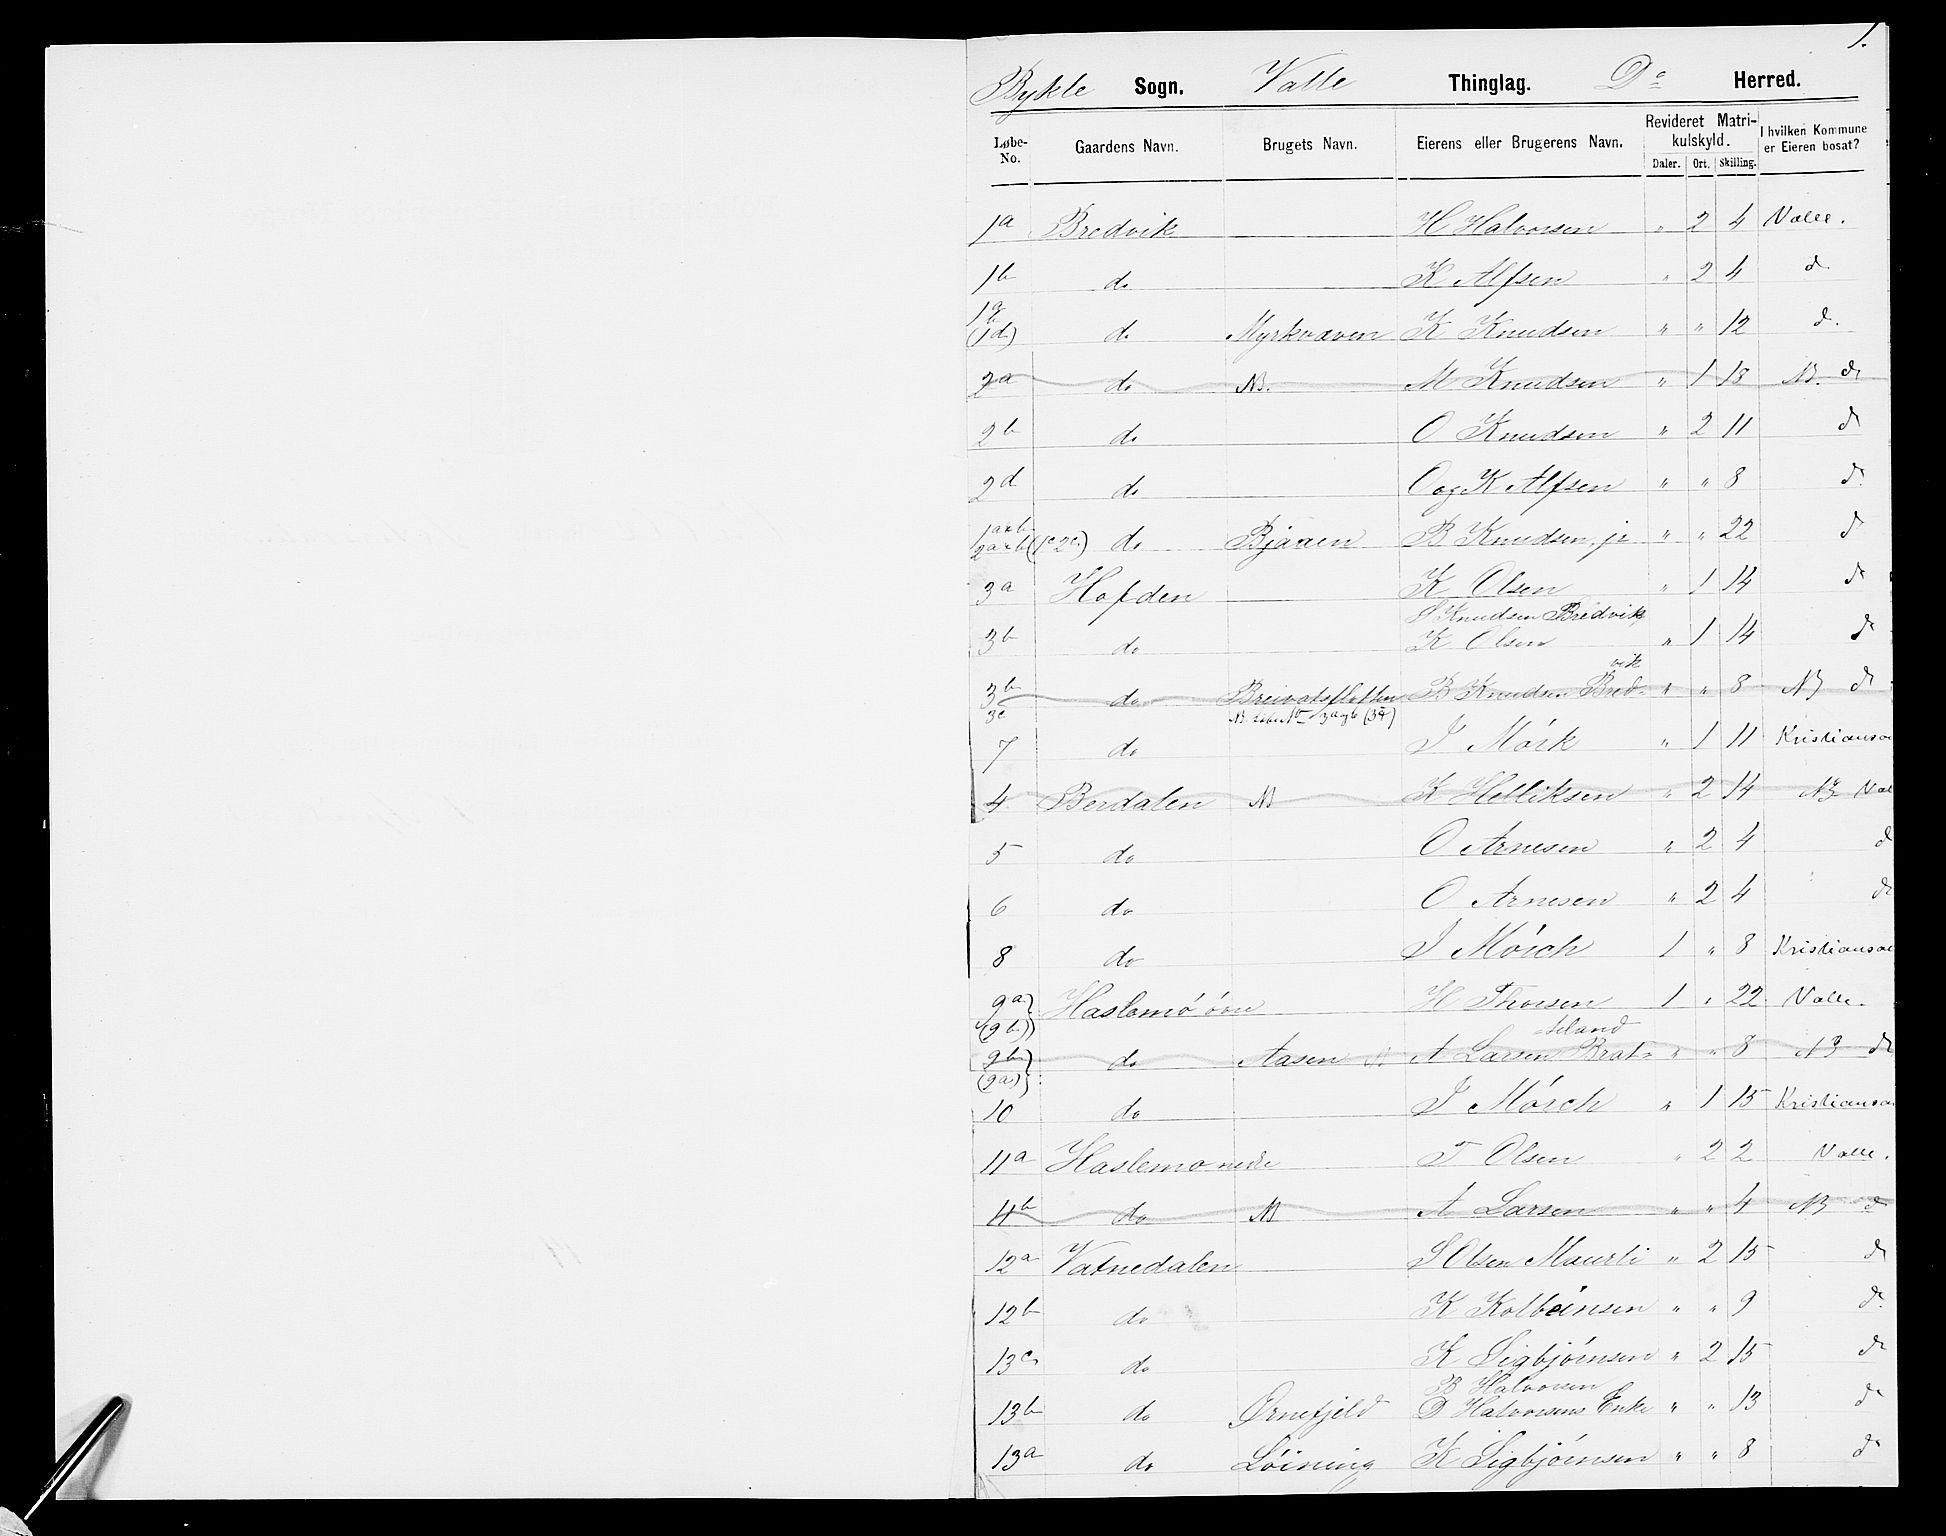 1.
Bykle Sogn. Valle Thinglag. Do Herred.
Løbe-No. Gaardens Navn. Brugets Navn. Eierens eller Brugerens Navn. Revideret Matrikulskyld. Daler. Ort. Skilling. I hvilken Kommune er Eieren bosat?
1a Bredvik H Halvorsen " 2 4 Valle.
1b do K Alfsen " 2 4 do
1a b (1d) do Myrkvaven K Knudsen " " 12 do
2a do NB. M Knudsen " 1 18 NB. do
2b do O Knudsen " 2 11 do
2d do O og K Alfsen " " 8 do
1a x b 2a x b (1c 2c) do Bjaaen B Knudsen, jr " " 22 do
3a Hofden K Olsen " 1 14 do
S Knudsen Bredvik
3b do K Olsen " 1 14 do
3b 3c do Breivatsflotten B Knudsen Bredvik " " 8 NB do
NB. Løbe No 3a og b
7 do J Mörk " 1 11 Kristiansa
4 Berdalen NB K Helliksen " 2 14 NB Val
5 do O Arnesen " 2 4 d
6 do O Arnesen " 2 4 do
8 do J Mörch 1 " 8 Kristiansa
9a (9b) Haslemö övre H Thorsen 1 " 22 Valle.
9b (9a) do Aasen N A Larsen Brateland " " 8 NB do
10 do J Mörch " 1 15 Kristiansa
11a Haslemo nedre T Olsen " 2 2 Valle.
4b do NB A Larsen " " 4 NB do
12a Vatnedalen S Olsen Maurli " 2 15 do
12b do K Kolbeinsen " " 9 do
13c do K Sigbjörnsen " 2 15 do
B Halvorsen
13b do Ørnefjeld D Halvorsens Enke " " 13 do
13a do Löining K Sigbjörnsen " " 8 do